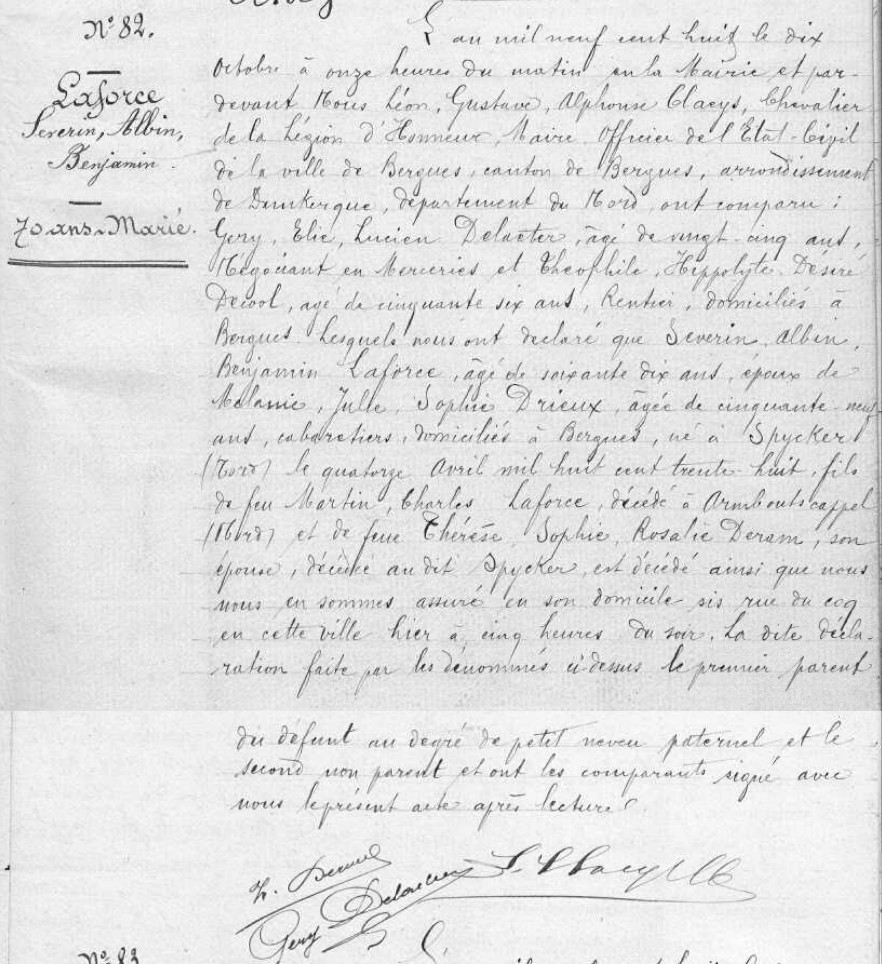 N° 82.
Laforce
Severin, Albin,
Benjamin.
70 ans. Marié.
L'an mil neuf cent huit le dix
Octobre à onze heures du matin en la Mairie et par-
devant Nous Léon, Gustave, Alphonse Claeys, Chevalier
de la Légion d'Honneur, Maire Officier de l'Etat-Civil
de la ville de Bergues, canton de Bergues, arrondissement
de Dunkerque, département du Nord, ont comparu :
Gery, Elie, Lucien Delaeter, âgé de vingt-cinq ans,
Négociant en Merceries et Théophile, Hippolyte, Désiré
Decool, agé de cinquante six ans, Rentier, domiciliés à
Bergues. Lesquels nous ont declaré que Severin, Albin,
Benjamin Laforce, âgé de soixante dix ans, époux de
Mélanie, Julie, Sophie Drieux, âgée de cinquante-neuf
ans, cabaretiers, domiciliés à Bergues, né à Spycker
(Nord) le quatorze Avril mil huit cent trente-huit, fils
de feu Martin, Charles Laforce, décédé à Armboutscappel
(Nord) et de feue Thérèse, Sophie, Rosalie Deram, son
épouse, décédée au dit Spycker, est décédé ainsi que nous
nous en sommes assuré en son domicile sis rue du coq
en cette ville hier à cinq heures du soir. La dite décla-
ration faite par les dénommés ci-dessus le premier parent
du défunt au degré de petit neveu paternel et le
second non parent et ont les comparants signé avec
nous le présent acte après lecture.
Gery Delaeter
N° 83